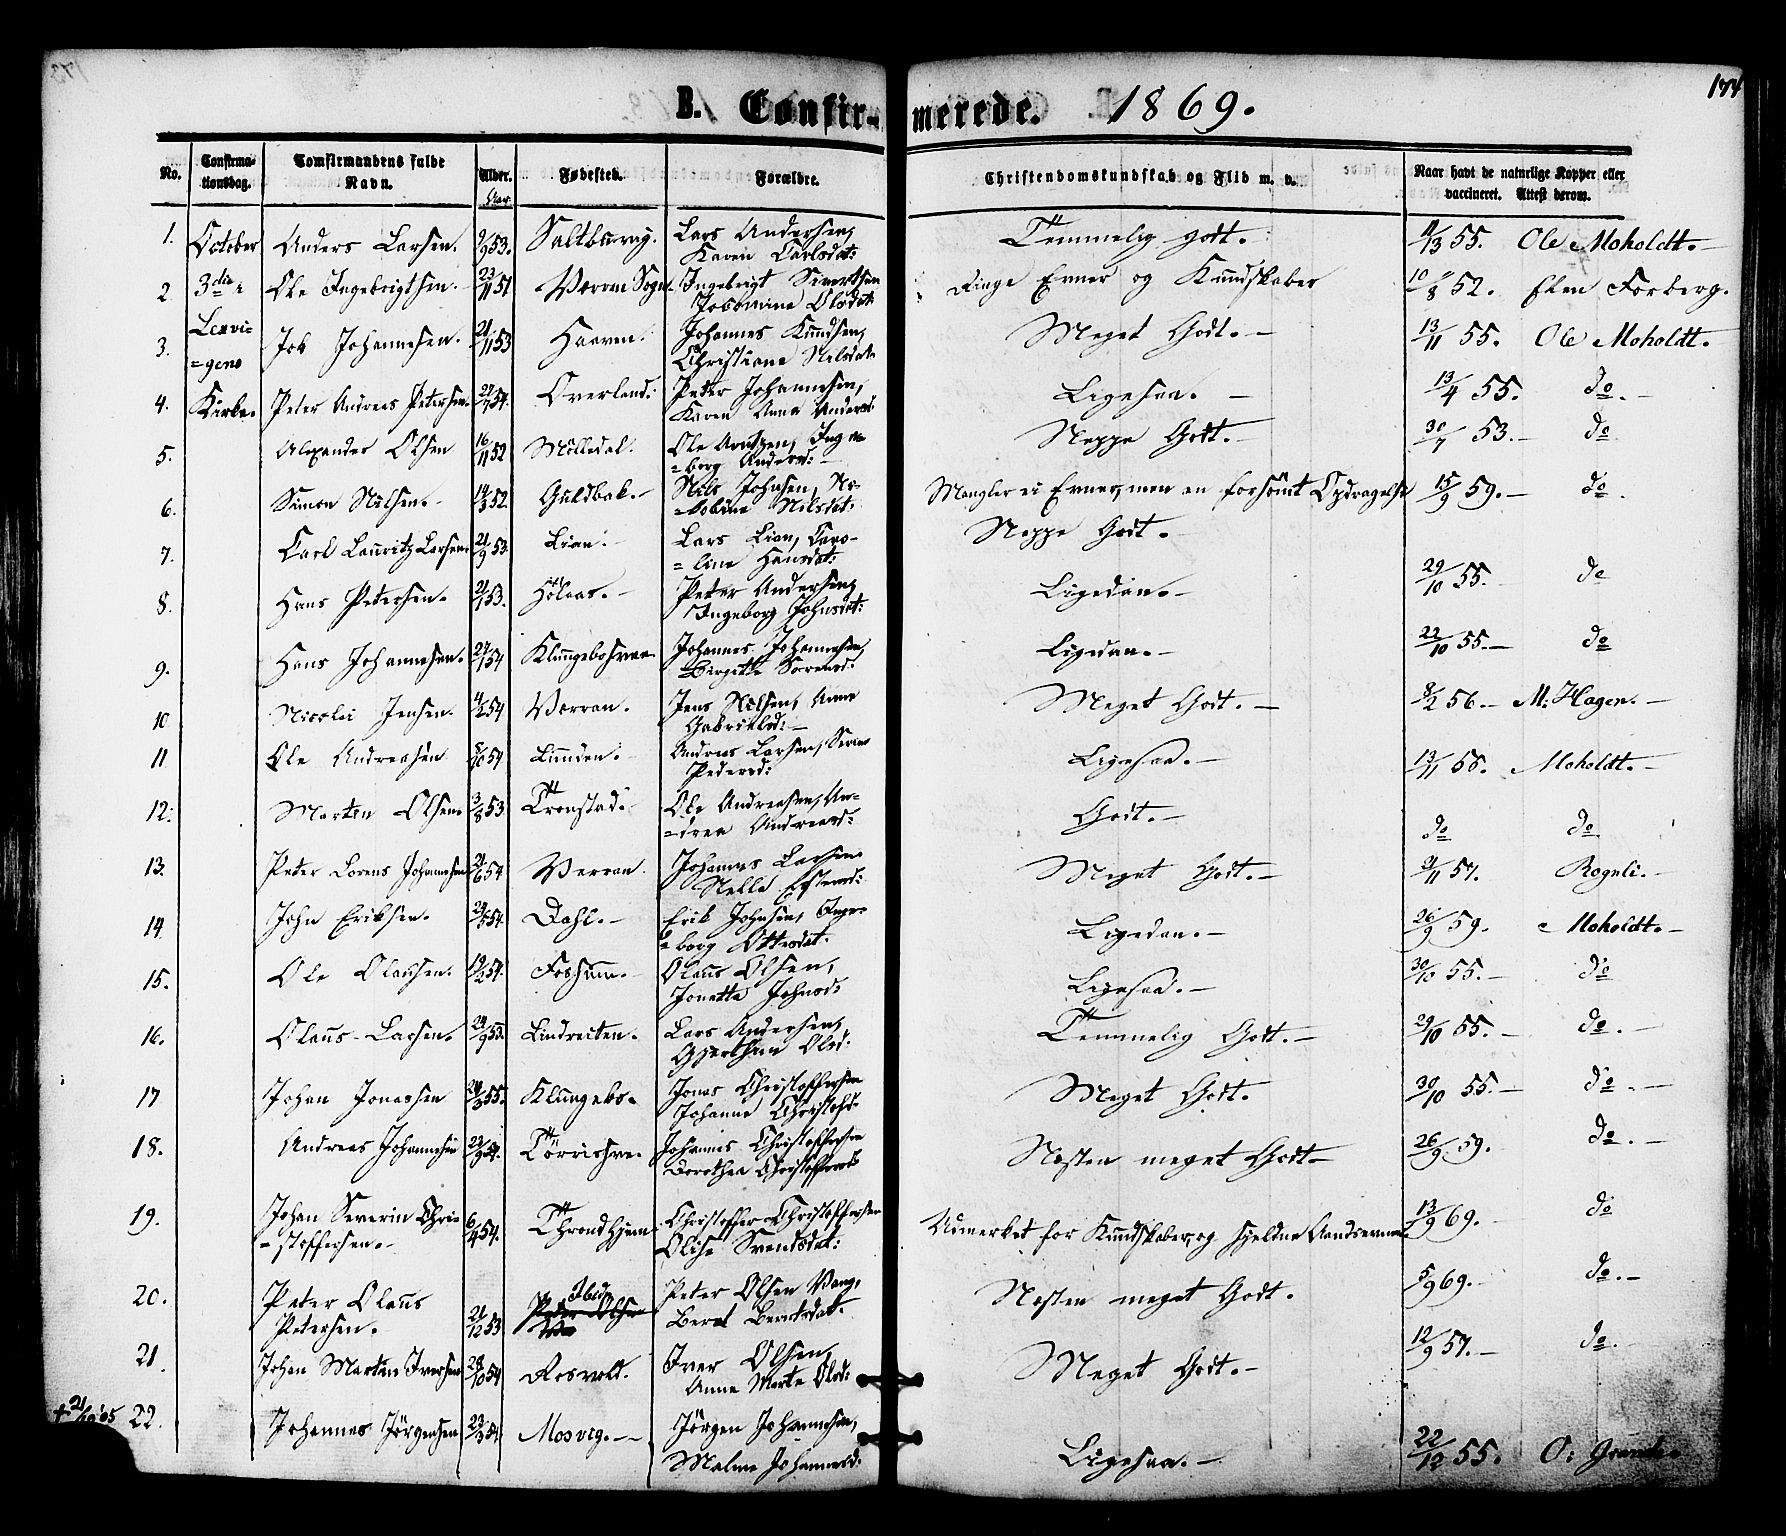 174
B. Confirmerede. 1869.
No. Confirmationsdag. Comfirmandens fulde Navn. Alder. Aar. Fødested. Forældre. Christendomskundskab og Flid m. v. Naar havt de naturlige Kopper eller vaccineret. Attest derom.
1. October Anders Larsen. 9/9 53. Saltburvig. Lars Andersen, Karen Carlsdat: Temmelig godt. - 11/3 55. Ole Moholdt. -
2. 3die Ole Ingebrigtsen. 23/11 51 Værran Sogn. Ingebrigt Sivertsen Olsdat: Ringe Evner og Kundskaber 10/8 52. Forberg.
3. Lexvi=gens Job Johannesen. 21/11 53 Haaven. Johannes Knudsen, Christiane Nilsdat. Meget Godt. - 13/11 55. Ole Moholdt.
4. Kirke. Peter Andreas Petersen. 54. Overland: Peter Johannesen, Karen Anna Andersd Ligesaa. - 13/4 55. do. -
5. Alexander Olsen 16/11 52 Mölledal. Ole Arntzen, Inge=borg Andersd: - Neppe Godt. - 30/7 53. - do
6. Simon Nilsen. - 14/3 52. Guldbak. - Nils Johnsen, Nilsdat. Mangler ei Evner, men en forsömt Opdragelse 15/9 59. - do.
7. Carl Lauritz Larsen. 21/9 53. Lian. Lars Lian, Caro=line Hansdat: Neppe Godt. -
8. Hans Petersen. 21/1 53. Hölaas. - Peter Andersen, Ingeborg Johnsdat: Ligedan. - 29/10 55. - do
9. Hans Johannesen. 24/1 54 Johannes Johannesen, Birgitte Ligedan. - 22/10 55. - do
10. Nicolai Jensen. 4/2 54 Værran. Jens Nilsen, Anne Gabrielsd: - Meget Godt. - 8/2 56. - M. Hagen. -
11 Ole Andreasen 8/10 54 Lunden. Andreas Larsen, Pedersd: Ligesaa. - 13/11 55. Moholdt. -
12: Morten Olsen 3/8 53 Tronstad. Ole Andreasen, An=drea Andreasd: Godt. - do do
13. Peter Lorens Johannesen 21/6 54 Verran. Johannes Larsen Meget Godt. - 57. Rogneli. -
14. John Eriksen. 54. Dahl. - Erik Johnsen, Inge=borg Ottesdat. Ligedan. - 26/9 59. Moholdt. -
15. Ole Olaussen. 19/2 54. Fossum. - Olaus Olsen, Jonetta Johnsd: Ligesaa. - 30/10 55. - do
16. Olaus Larsen. 24/9 53. Lindreiten. Lars Andersen, Olsd: Temmelig Godt. - 29/10 55. - do. -
17 Johan Jonassen 55. Klungebo. Jonas Christoffersen Johanne Christofd. Meget Godt. 30/10 55. - do. -
18. Andreas Johannesen 54. Johannes Christoffersen Dorothea Christoffersd Næsten meget Godt - 26/9 59. do. -
19. Johan Severin Chri=stoffersen. - 6/4 54. Throndhjem. Christoffer Christoffersen Olise Svendsdat: Udmærket for Kundskaber, og sjeldne Aandsevner. 13/9 69. do
20. Peter Olaus Petersen. 21/12 53 Ibid. Peter Olsen Vang, Beret Berntsdat. Næsten meget Godt. 5/9 69. - do. -
21 Johan Martin Iversen 28/10 54 Rosvold. Iver Olsen, Anne Marte Olsd: Meget Godt. - 12/9 57. - do. -
+ 05 22. Johannes Jörgensen 54. Mosvig. - Jörgen Johannesen, Malene Johannesd: Ligesaa. - 22/12 55. O: